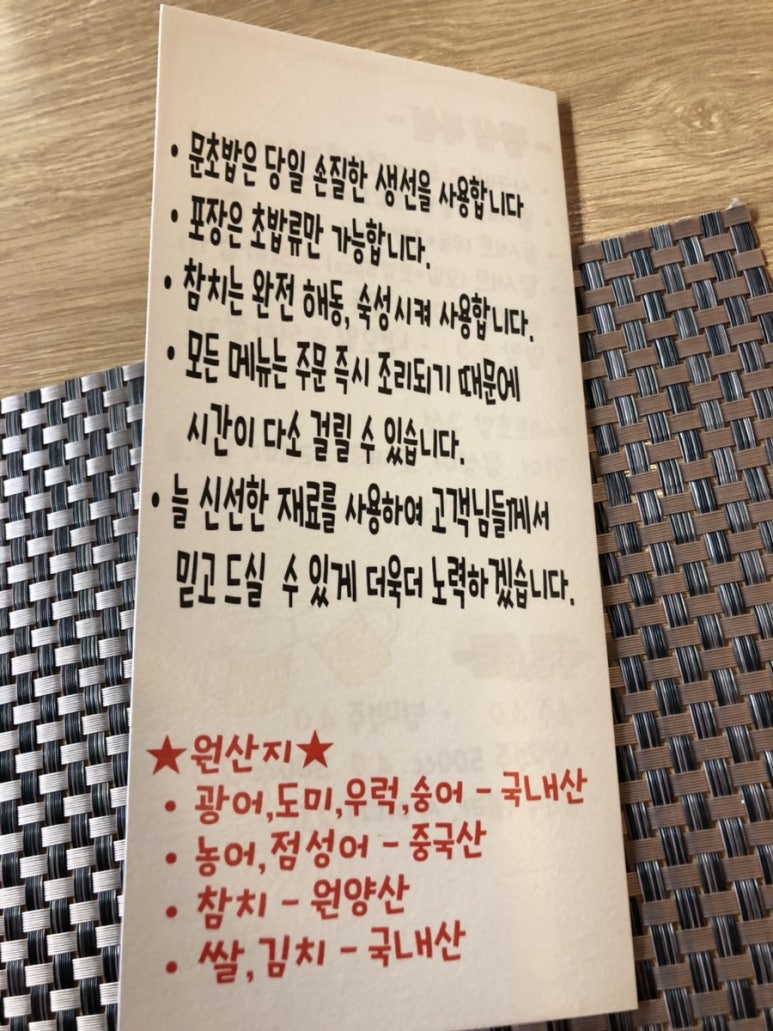 • 문초밥은 당일 손질한 생선을 사용합니다
• 포장은 초밥류만 가능합니다.
• 참치는 완전 해동, 숙성시켜 사용합니다.
• 모든 메뉴는 주문 즉시 조리되기 때문에
시간이 다소 걸릴 수 있습니다.
• 늘 신선한 재료를 사용하여 고객님들께서
믿고 드실 수 있게 더욱더 노력하겠습니다.
★원산지★
• 광어,도미,우럭,숭어 - 국내산
• 농어,점성어 - 중국산
• 참치 - 원양산
• 쌀,김치 - 국내산